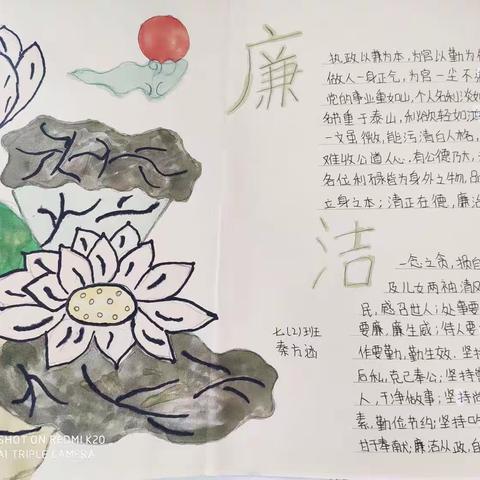 廉
执政以廉为本,为官以勤为
做人一身正气,为官一尘不
党的事业重如山,个人名利淡如
名节重于泰山,利欲轻如鸿
一文虽微,能污清白人格,
难收公道人心,有公德乃大,
各位利禄皆为身外之物,品
立身之本;清正在德,廉洁
洁
一念之贪,损自
及儿女两袖清风
民,感召世人;处事要
要廉,廉生威;待人要
作要勤,勤生效.坚持
后私,克己奉公;坚持
人,干净做事;坚持
素,勤俭节约;坚持吃
甘于奉献;廉洁从政,自
七(2)班
SHOT ON REDMI K20
AI TRIPLE CAMERA